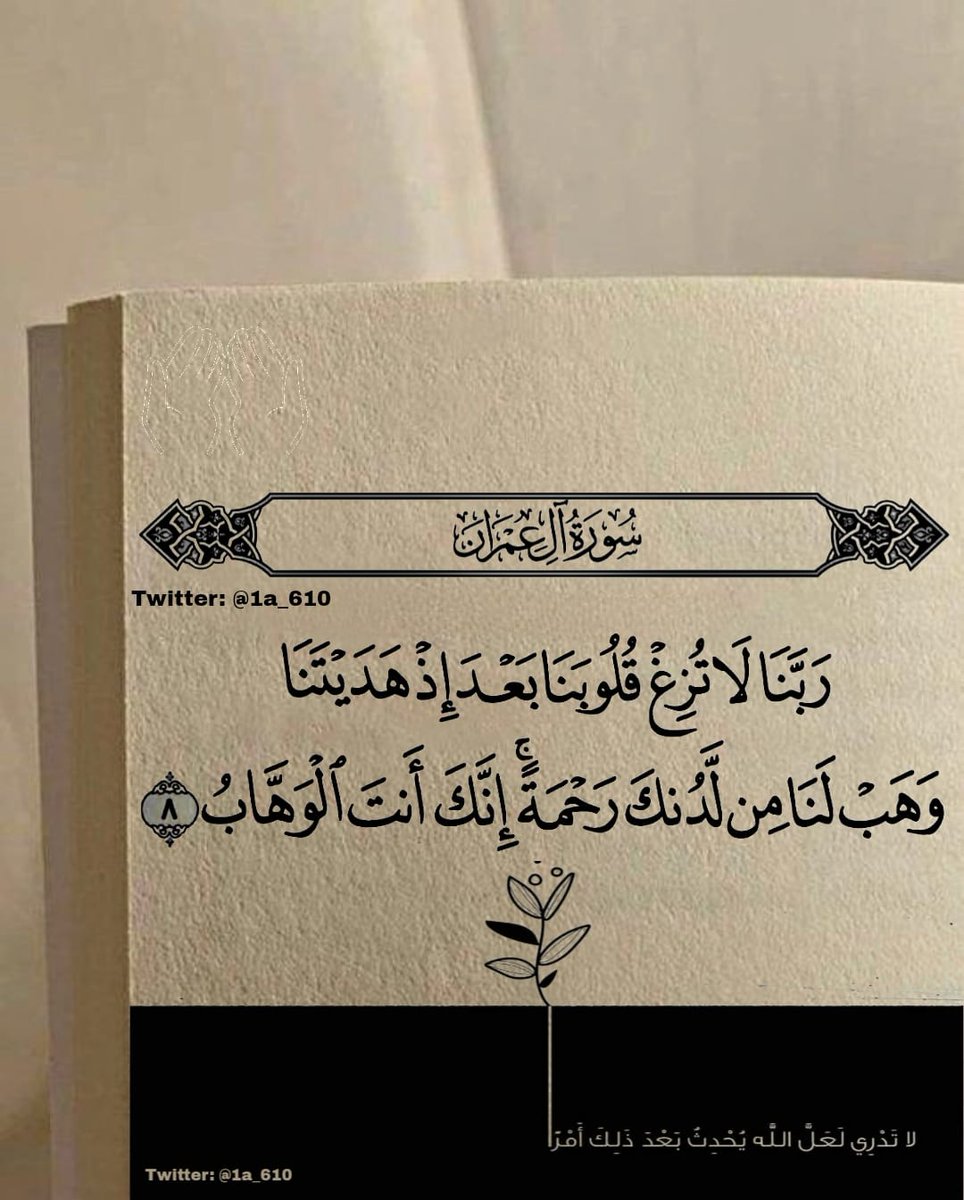 سُورَةُ آلِ عِمْرَانَ
Twitter: @1a_610
رَبَّنَا لَا تُزِغْ قُلُوبَنَا بَعْدَ إِذْ هَدَيْتَنَا
وَهَبْ لَنَا مِن لَّدُنكَ رَحْمَةً ۚ إِنَّكَ أَنتَ ٱلْوَهَّابُ ٨
لا تَدْرِي لَعَلَّ اللَّه يُحْدِثُ بَعْدَ ذَلِكَ أَمْرًا
Twitter: @1a_610